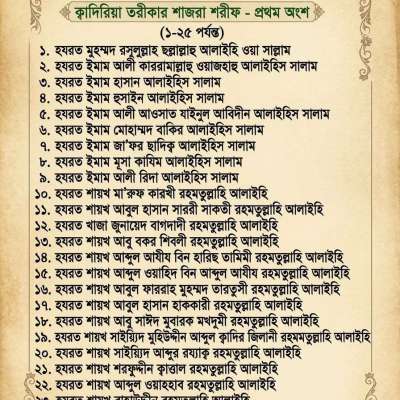 ক্বাদিরিয়া তরীকার শাজরা শরীফ - প্রথম অংশ
(১-২৫ পর্যন্ত)
১. হযরত মুহম্মদ রসূলুল্লাহ ছল্লাল্লাহু আলাইহি ওয়া সাল্লাম
২. হযরত ইমাম আলী কাররামাল্লাহু ওয়াজহাহু আলাইহিস সালাম
৩. হযরত ইমাম হাসান আলাইহিস সালাম
৪. হযরত ইমাম হুসাইন আলাইহিস সালাম
৫. হযরত ইমাম আলী আওসাত যাইনুল আবিদীন আলাইহিস সালাম
৬. হযরত ইমাম মোহাম্মদ বাকির আলাইহিস সালাম
৭. হযরত ইমাম জা'ফর ছাদিক্ব আলাইহিস সালাম
৮. হযরত ইমাম মূসা কাযিম আলাইহিস সালাম
৯. হযরত ইমাম আলী রিদা আলাইহিস সালাম
১০. হযরত শায়খ মা'রুফ কারখী রহমতুল্লাহি আলাইহি
১১. হযরত শায়খ আবুল হাসান সাররী সাকতী রহমতুল্লাহি আলাইহি
১২. হযরত খাজা জুনায়েদ বাগদাদী রহমতুল্লাহি আলাইহি
১৩. হযরত শায়খ আবু বকর শিবলী রহমতুল্লাহি আলাইহি
১৪. হযরত শায়খ আব্দুল আযীয বিন হারিছ তামিমী রহমতুল্লাহি আলাইহি
১৫. হযরত শায়খ আব্দুল ওয়াহিদ বিন আব্দুল আযীয রহমতুল্লাহি আলাইহি
১৬. হযরত শায়খ আবুল ফাররাহ মুহম্মদ তারতুসী রহমতুল্লাহি আলাইহি
১৭. হযরত শায়খ আবুল হাসান হাককারী রহমতুল্লাহি আলাইহি
১৮. হযরত শায়খ আবু সাঈদ মুবারক মখদুমী রহমতুল্লাহি আলাইহি
১৯. হযরত শায়খ সাইয়্যিদ মুহিউদ্দীন আব্দুল ক্বাদির জিলানী রহমমতুল্লাহি আলাইহি
২০. হযরত শায়খ সাইয়্যিদ আব্দুর রয্যাক্ব রহমতুল্লাহি আলাইহি
২১. হযরত শায়খ শরফুদ্দীন ক্বাত্তাল রহমতুল্লাহি আলাইহি
২২. হযরত শায়খ আব্দুল ওয়াহহাব রহমতুল্লাহি আলাইহি
২৩. হযরত শায়খ বাহাউদ্দীন রহমতুল্লাহি আলাইহি